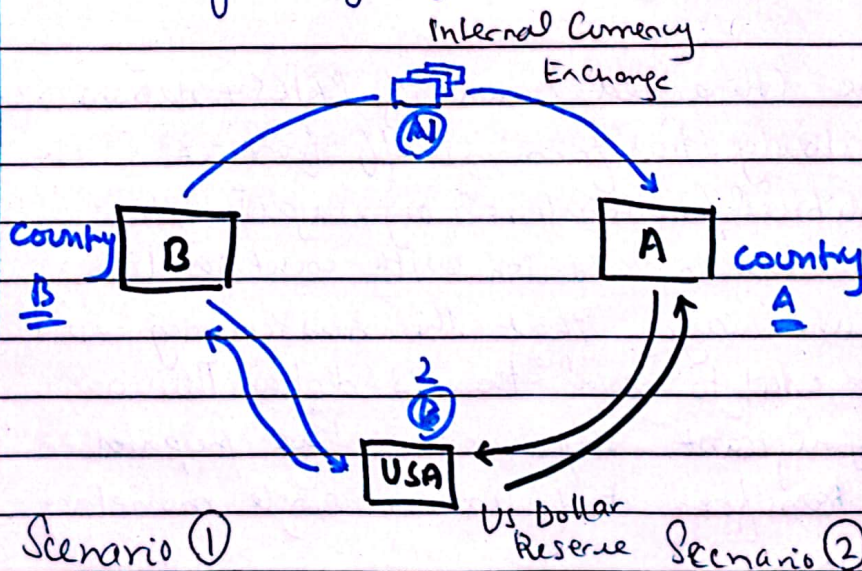 Internal Currency
Exchange
A1
B
A
Country
B
Country
A
2
B
USA
US Dollar
Reserve
Scenario 1
Scenario 2